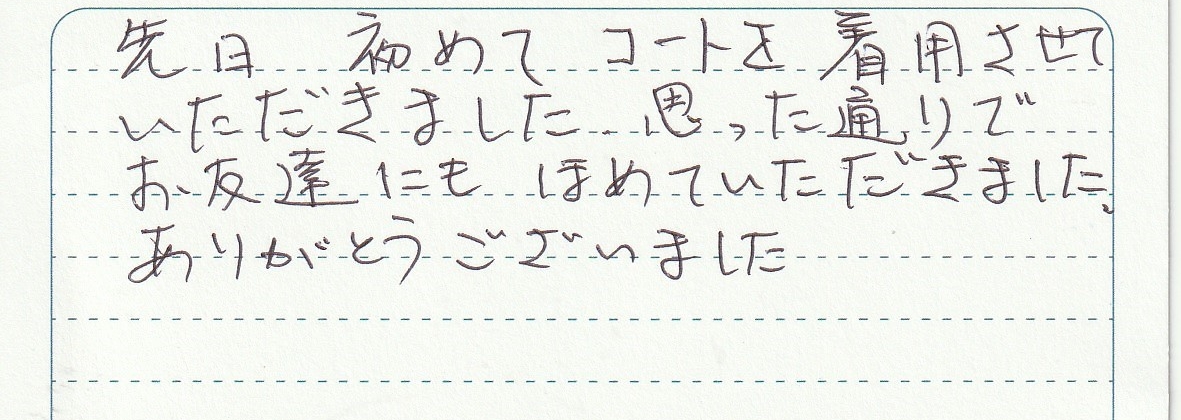 先日 初めて コートを 着用させて
いただきました 思った通りで
お友達にも ほめていただきました。
ありがとうございました